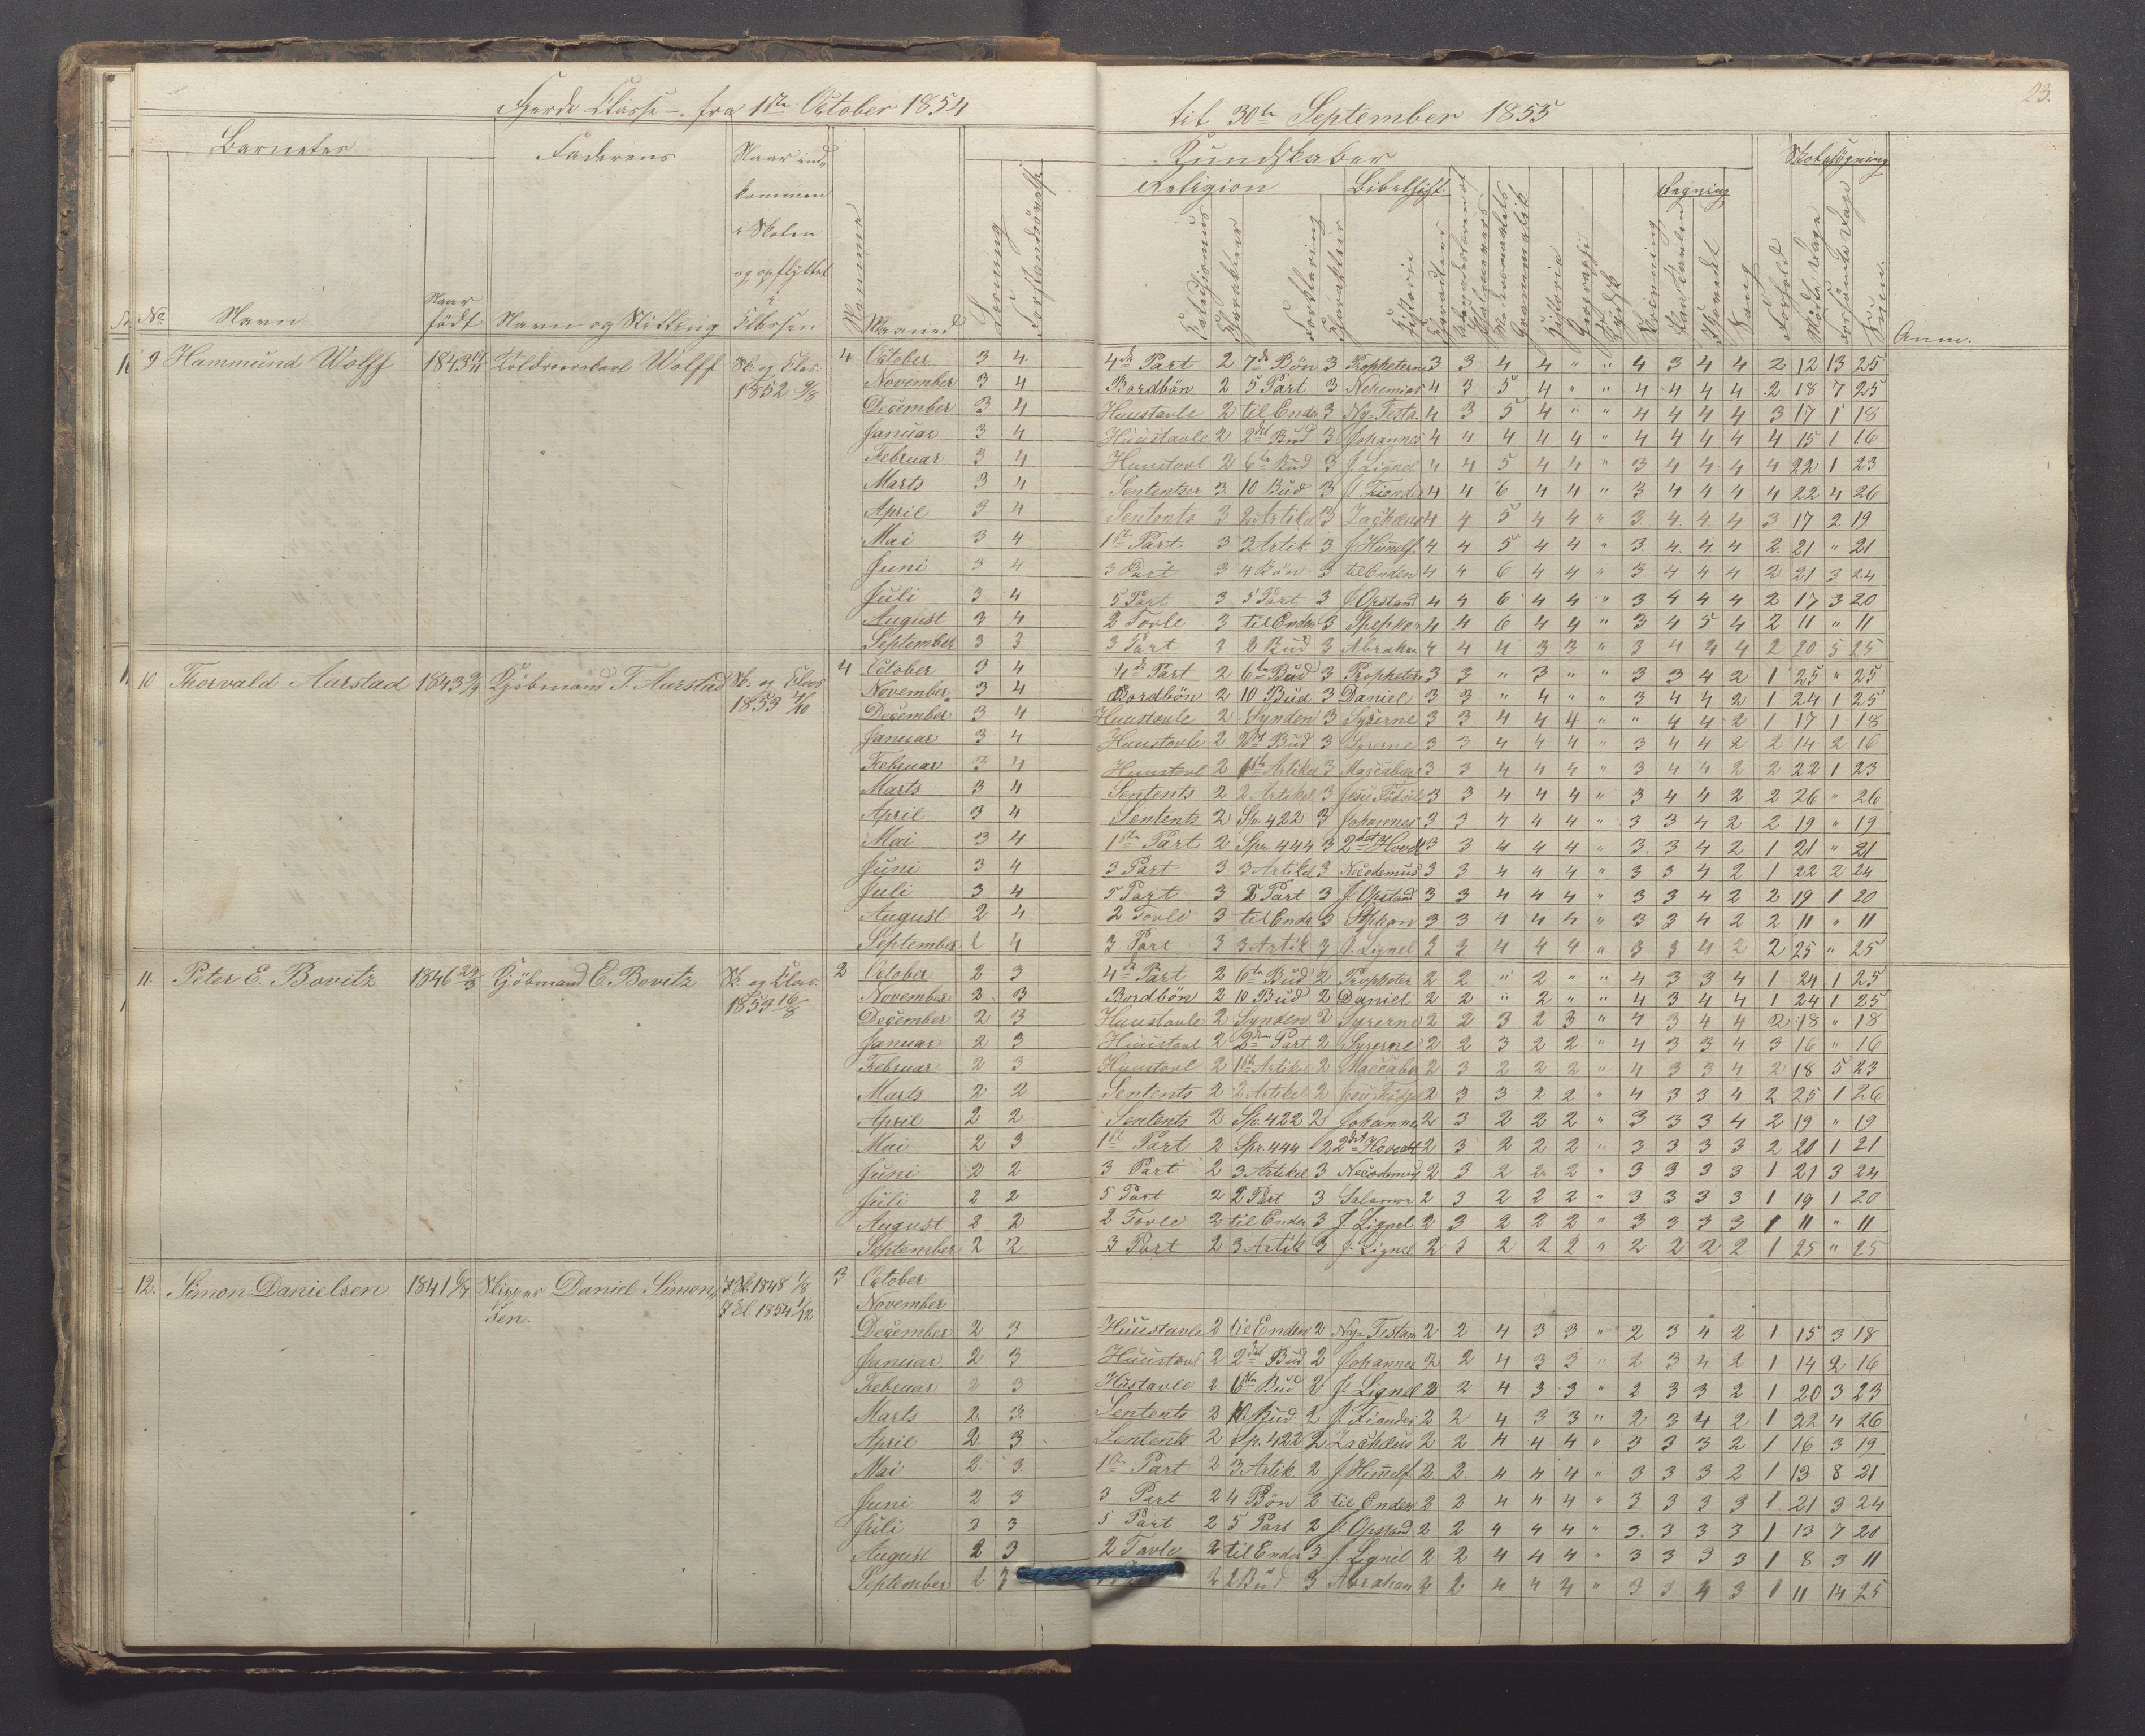 Fjerde Classe – fra 1ste October 1854 til 30te September 1855
23.
Barnets Faderens Naar ind-
kommen
i Skolen
og opflyttet
i
Classen
No Navn Naar født Navn og Stilling Maaned Læsning
Kundskaber Skolesøgning
Religion Bibelhist. Regning
Sang Forhold Anm.
9 Hammund Wolff 1843 Wolff Sk. og Clas. 1852 4
October 3 4 4de Part 2 7de Bön 3 Propheterne 3 3 4 4 " " 4 3 4 4 2 12 13 25
November 3 4 Bordbön 2 5 Part 3 Nehemias 4 3 5 4 " " 4 4 4 4 2 18 7 25
December 3 4 Huustavle 2 til Enden 3 Ny-Testa. 4 3 5 4 " " 4 4 4 4 3 17 1 18
Januar 3 4 Huustavle 2 2det Bud 3 Johannes 4 4 4 4 4 " 4 4 4 4 4 15 1 16
Februar 3 4 Huustavl 2 6te Bud 3 J. Lignel 4 4 5 4 4 " 3 4 4 4 4 22 1 23
Marts 3 4 Sentenser 3 10 Bud 3 J. Fiender 4 4 6 4 4 " 3 4 4 4 4 22 4 26
April 3 4 Sentents 3 2 Artikel 3 Zachæus 4 4 5 4 4 " 3 4 4 4 3 17 2 19
Mai 3 4 1ste Part 3 3 Artik 3 J. Himmelf. 4 4 5 4 4 " 3 4 4 4 2 21 " 21
Juni 3 4 3 Part 3 4 Bön 3 til Enden 4 4 6 4 4 " 3 4 4 4 2 21 3 24
Juli 3 4 5 Part 3 5 Part 3 J. Opstand 4 4 6 4 4 " 3 4 4 4 2 17 3 20
August 3 4 2 Tavle 3 til Enden 3 Stephan 4 4 6 4 4 " 3 4 5 4 2 11 " 11
September 3 3 3 Part 3 2 Bud 3 Abraham 4 4 4 3 3 " 3 4 3 4 2 20 5 25
10 Thorvald Aarstad 1843 Kjöbmand T. Aarstad Sk. og Clas 1853 4/10 4
October 3 4 4de Part 2 6te Bud 3 Propheter 3 3 " 3 " " 3 3 4 2 1 25 " 25
November 3 4 Bordbön 2 10 Bud 3 Daniel 3 3 " 4 " " 3 4 4 2 1 24 1 25
December 3 4 Huustavle 2 Synden 3 Syrerne 3 3 4 4 4 " " 4 4 2 1 17 1 18
Januar 3 4 Huustavle 2 2det Bud 3 Syrerne 3 3 4 4 4 " 3 4 4 2 2 14 2 16
Februar 3 4 Huustavl 2 1ste Artikel 3 Maccabæer 3 3 4 4 4 " 3 4 4 2 2 22 1 23
Marts 3 4 Sentents 2 2 Artikel 3 Jesu Födsel 3 3 4 4 4 " 3 4 4 2 2 26 " 26
April 3 4 Sentents 2 Sp. 422 3 Johannes 3 3 4 4 4 " 3 3 4 2 2 19 " 19
Mai 3 4 1ste Part 2 Spr. 444 3 2det Hoved 3 3 4 4 4 " 3 3 4 2 1 21 " 21
Juni 3 4 3 Part 3 3 Artikel 3 Nicodemus 3 3 4 4 4 " 3 3 4 2 1 22 2 24
Juli 3 4 5 Part 3 2 Part 3 J. Opstand 3 3 4 4 4 " 3 3 4 2 2 19 1 20
August 2 4 2 Tavle 3 til Ende 3 Stephan 3 3 4 4 4 " 3 3 4 2 2 11 " 11
September 2 4 3 Part 3 3 Artik 3 J. Lignel 3 3 4 4 4 " 3 3 4 2 2 25 " 25
11. Peter E. Bovitz 1846 Kjöbmand E. Bovitz Sk. og Clas. 1853 16/8 2
October 2 3 4de Part 2 6te Bud 2 Propheter 2 2 " 2 " " 4 3 3 4 1 24 1 25
November 2 3 Bordbön 2 10 Bud 2 Daniel 2 2 " 2 " " 4 3 4 4 1 24 1 25
December 2 3 Huustavle 2 Synden 2 Syrerne 2 2 3 2 3 " 4 3 4 4 2 18 " 18
Januar 2 3 Huustavl 2 2den Part 2 Syrerne 2 2 3 2 2 " 4 3 3 4 3 16 " 16
Februar 2 3 Huustavl 2 1ste Artikel 2 Maccabæ 2 3 2 2 2 " 4 3 3 4 2 18 5 23
Marts 2 2 Sentents 2 2 Artikel 2 Jesu Födsel 2 3 3 2 2 " 4 3 3 4 2 25 1 26
April 2 2 Sentents 2 Sp. 422 2 Johannes 2 3 2 2 2 " 3 3 3 4 2 19 " 19
Mai 2 3 1ste Part 2 Spr. 444 2 2det Hovedst 2 3 2 2 2 " 3 3 3 3 2 20 1 21
Juni 2 2 3 Part 2 3 Artikel 3 Nicodemus 2 3 2 2 2 " 3 3 3 3 1 21 3 24
Juli 2 2 5 Part 2 2 Part 3 Salamon 2 3 2 2 2 " 3 3 3 3 1 19 1 20
August 2 2 2 Tavle 2 til Enden 3 J. Lignel 2 3 2 2 2 " 3 3 3 3 1 11 " 11
September 2 2 3 Part 2 3 Artik 3 J. Lignel 2 3 2 2 2 " 2 2 2 2 1 25 " 25
12. Simon Danielsen 1841 Skipper Daniel Simon- i Sk. 1848 1/8 3
sen. i Cl. 1854 1/12
October
November
December 2 3 Huustavle 2 til Enden 2 Ny-Testam 2 2 4 3 3 " 2 3 4 2 1 15 3 18
Januar 2 3 Huustavl 2 2det Bud 2 Johannes 2 2 4 3 3 " 2 3 4 2 1 14 2 16
Februar 2 3 Hustavle 2 6te Bud 2 J. Lignel 2 2 4 3 3 " 2 3 3 2 1 20 3 23
Marts 2 3 Sentents 2 10 Bud 2 J. Fiender 2 2 4 3 3 " 2 3 4 2 1 22 4 26
April 2 3 Sentents 2 Sp. 422 2 Zachæus 2 2 4 4 4 " 3 3 3 2 1 16 3 19
Mai 2 3 1ste Part 2 3 Artik 2 J. Himmelf. 2 2 4 4 4 " 3 3 3 2 1 13 8 21
Juni 2 3 3 Part 2 4 Bön 2 til Enden 2 2 4 4 4 " 3 3 3 3 1 21 3 24
Juli 2 3 5 Part 2 5 Part 2 J. Opstand 2 2 4 4 4 " 3 3 3 3 1 13 7 20
August 2 3 2 Tavle 2 til Ende 3 J. Lignel 2 2 4 4 4 " 3 3 3 3 1 8 3 11
September 2 3 2 2 Bud 3 Abraham 2 2 4 4 3 " 3 3 4 3 1 11 14 25